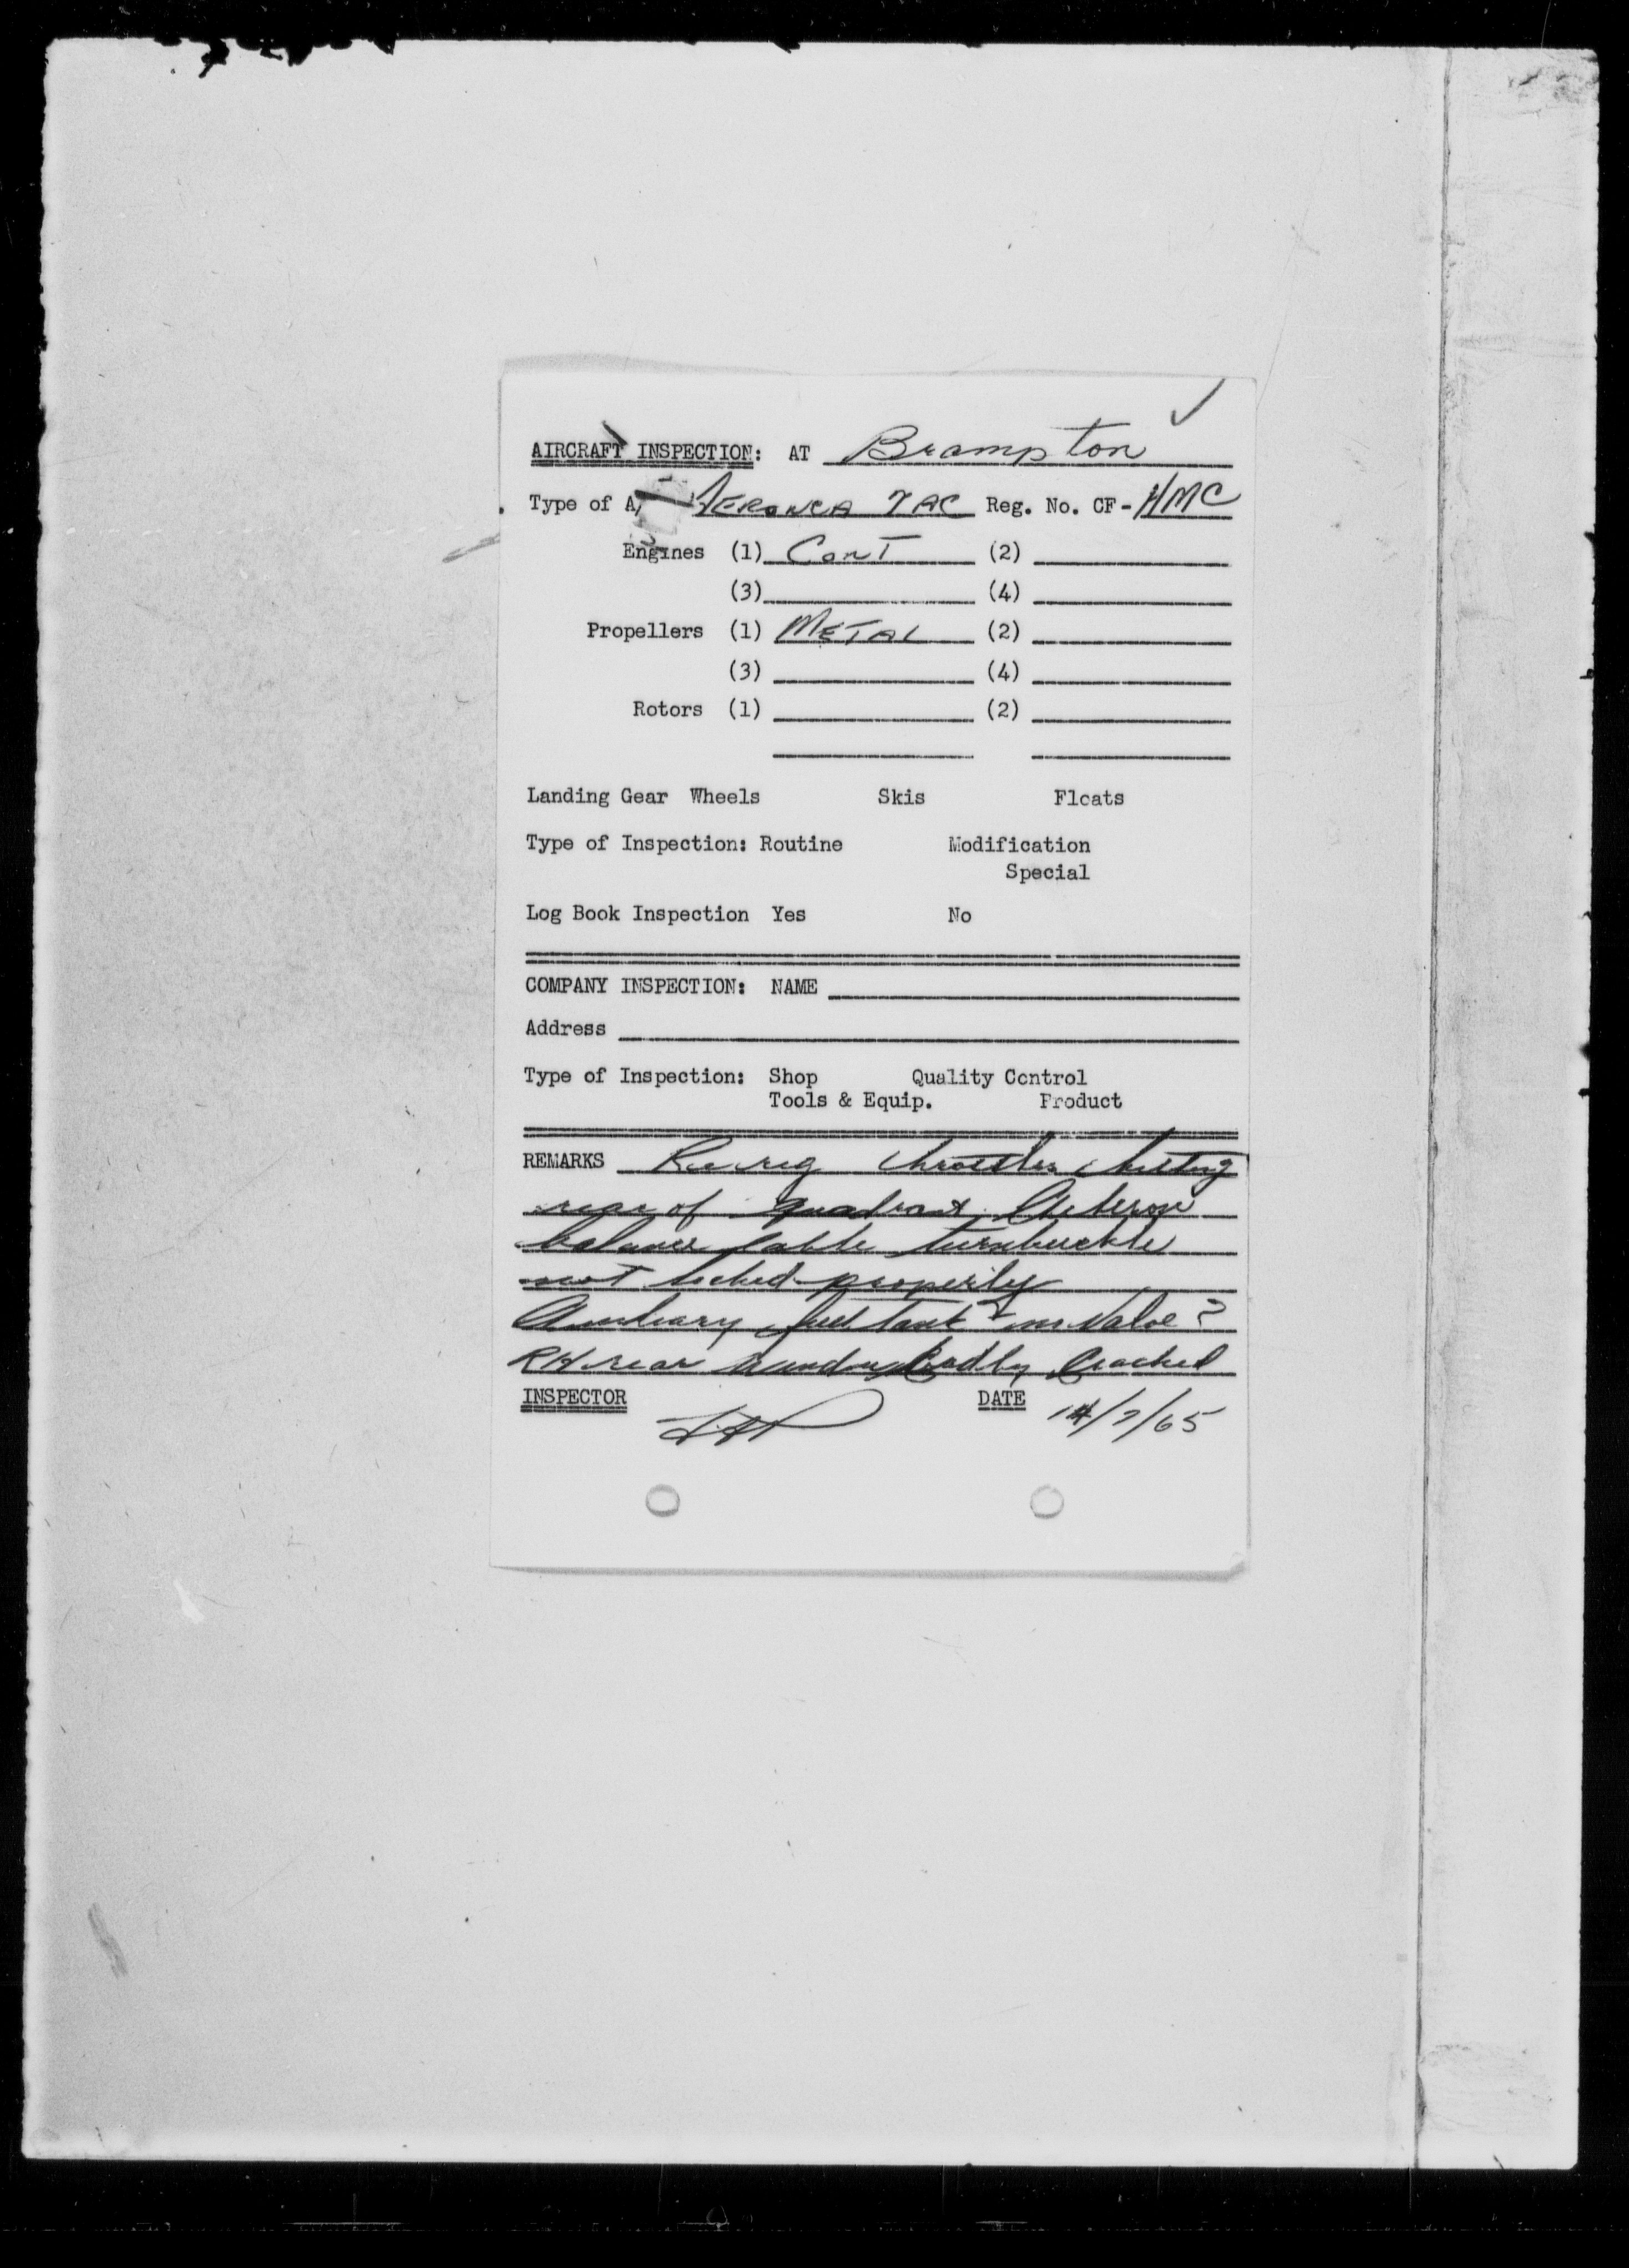 AIRCRAFT INSPECTION: AT Brampton
Type of A/ AERONCA 7AC Reg. No. CF-HMC
Engines (1) Cont (2)
(3) (4)
Propellers (1) METAL (2)
(3) (4)
Rotors (1) (2)
Landing Gear Wheels Skis Floats
Type of Inspection: Routine Modification
Special
Log Book Inspection Yes No
COMPANY INSPECTION: NAME
Address
Type of Inspection: Shop Quality Control
Tools & Equip. Product
REMARKS Re rig throttles hitting
rear of quadrant. Aileron
balance cable turnbuckle
not locked properly
Auxiliary fuel tank no valve?
RH rear window badly cracked
INSPECTOR DATE 14/7/65